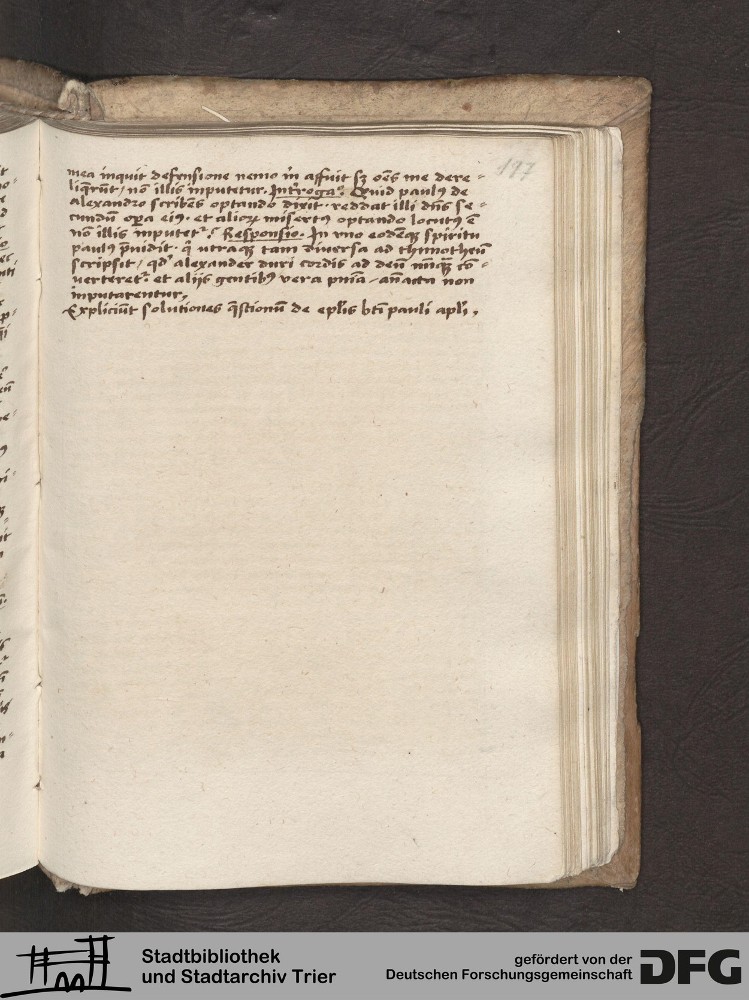 197
mea inquit defensione nemo m̄ affuit sꝫ oēs me dere⸗
liq̄rūt, nō illis inputetur. Int̄roga᷑. Quid paulꝰ de
alexandro scribēs optando dixit · reddat illi dn̄s se⸗
cundū oꝑa eiꝰ · et alioꝝ misertꝰ optando locutꝰ ē
nō illis inputet᷑. Responsio. In vno eodēqꝫ spiritu
paulꝰ p̄uidit · q̄ utraqꝫ tam diuersa ad thimotheū
scripsit, qd̓ alexander duri cordis ad deū nūqꝫ cō⸗
verteret᷑ · et aliis gentibꝰ vera pnīa, an̄acta non
inputarentur,
Expliciūt solutiones q̄stionū de epl̄is bt̄i pauli apl̄i,
Stadtbibliothek
und Stadtarchiv Trier
gefördert von der
Deutschen Forschungsgemeinschaft
DFG